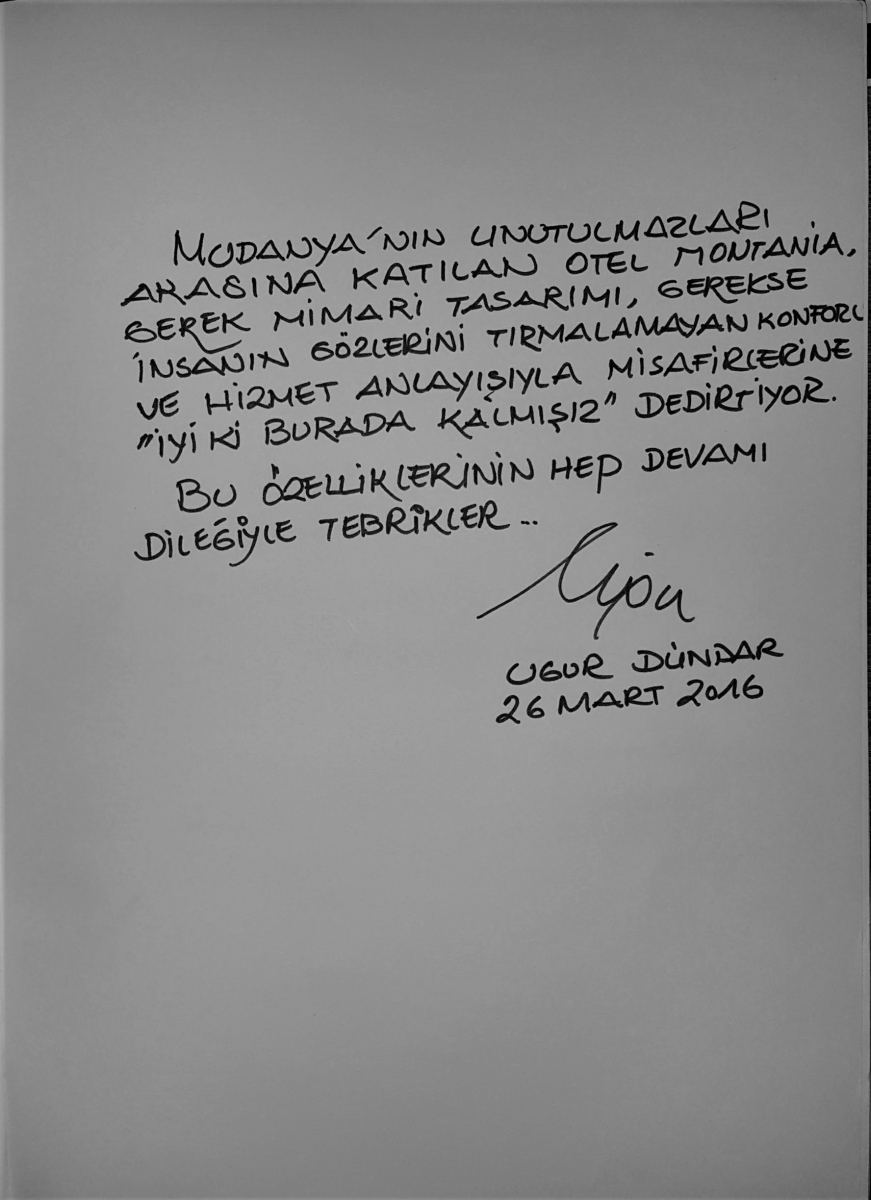 MUDANYA'NIN UNUTULMAZLARI
ARASINA KATILAN OTEL MONTANİA,
GEREK MİMARİ TASARIMI, GEREKSE
İNSANIN GÖZLERİNİ TIRMALAMAYAN KONFORU
VE HİZMET ANLAYIŞIYLA MİSAFİRLERİNE
"İYİ Kİ BURADA KALMIŞIZ" DEDİRTİYOR.
BU ÖZELLİKLERİNİN HEP DEVAMI
DİLEĞİYLE TEBRİKLER...
UGUR DÜNDAR
26 MART 2016